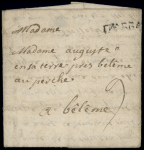 Madame
Madame auguste
en sa terre près belême
au perche
a belême